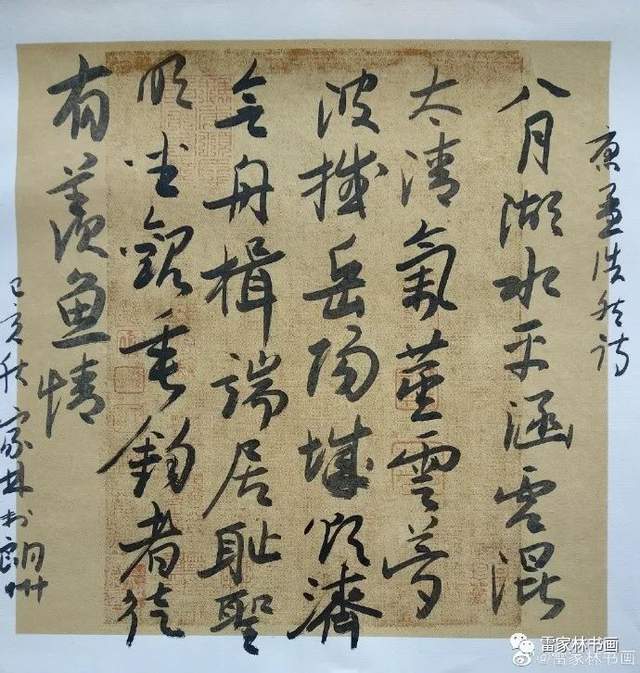 唐孟浩然诗
八月湖水平涵虚混
太清氣蒸雲夢
波撼岳阳城欲濟
無舟楫端居耻聖
明坐觀垂釣者徒
有羡魚情
己亥秋家林於朗州
雷家林书画
@雷家林书画